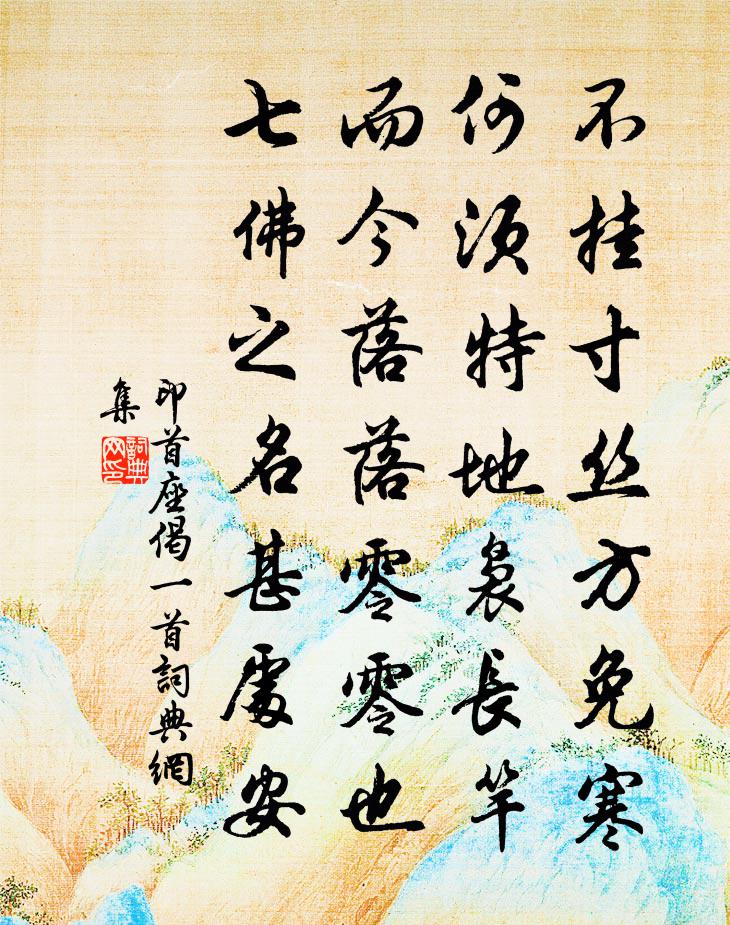 不挂寸丝方免寒
何須特地裊長竿
而今落落零零也
七佛之名甚處安
印首座偈一首詞典網
集
詞典
网印